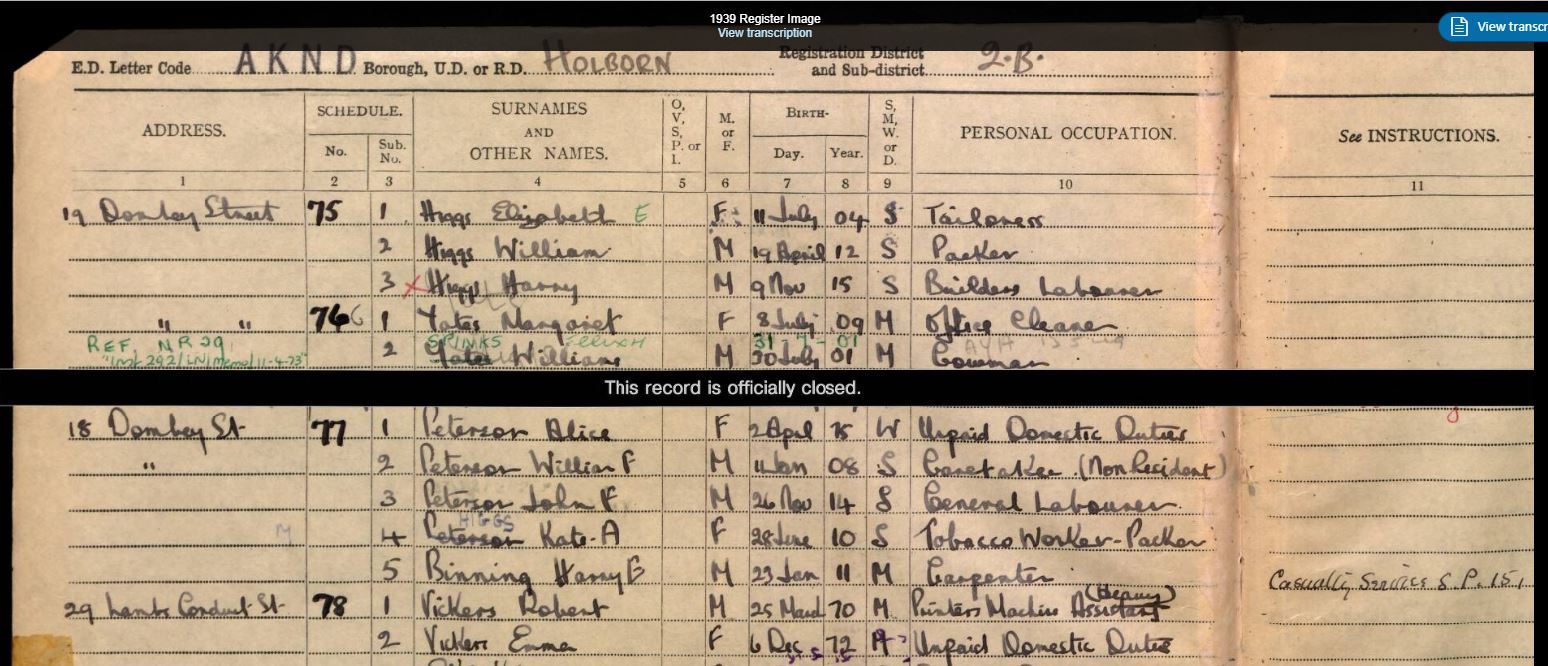 1939 Register Image
View transcription
View transcr
E.D. Letter Code AKND Borough, U.D. or R.D. HOLBORN Registration District and Sub-district 2.B.
ADDRESS. SCHEDULE. No. Sub. No. SURNAMES AND OTHER NAMES. O, V, S, P. or I. M. or F. BIRTH- Day. Year. S, M, W. or D. PERSONAL OCCUPATION. See INSTRUCTIONS.
1 2 3 4 5 6 7 8 9 10 11
19 Dombey Street 75 1 Higgs Elizabeth E F 11 July 04 S Tailoress
2 Higgs William M 19 April 12 S Packer
3 X Higgs Harry M 9 Nov 15 S Builders Labourer
" " 76 6 1 Yates Margaret F 8 July 09 M Office Cleaner
REF. NR 29 SPINKS 31-7-01
2 Yates William M 30 July 01 M
This record is officially closed.
18 Dombey St 77 1 Peterson Alice F 2 April 75 W Unpaid Domestic Duties
" 2 Peterson William F M 11 Jan 08 S Caretaker (Non Resident)
3 Peterson John F M 26 Nov 14 S General Labourer
HIGGS
M 4 Peterson Kate-A F 28 June 10 S Tobacco Worker-Packer
5 Binning Harry G M 23 Jan 11 M Carpenter Casualty Service S.P. 151
29 Lambs Conduit St 78 1 Vickers Robert M 25 March 70 M Printers Machine Assistant (Heavy)
2 Vickers Emma F 6 Dec 72 Unpaid Domestic Duties